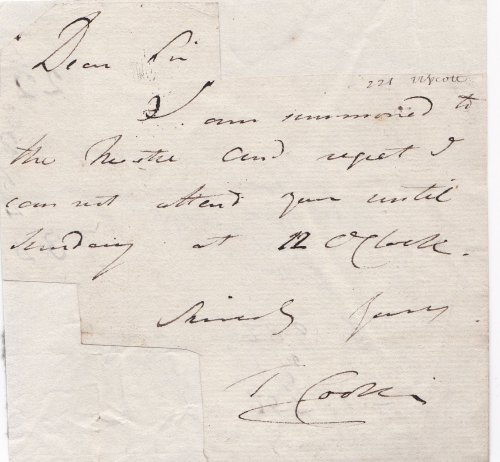 Dear Sir
I am summoned to
the Theatre and regret I
can not attend you until
Sunday at 12 O'Clock.
Sincerely Yours
T Cooke
221